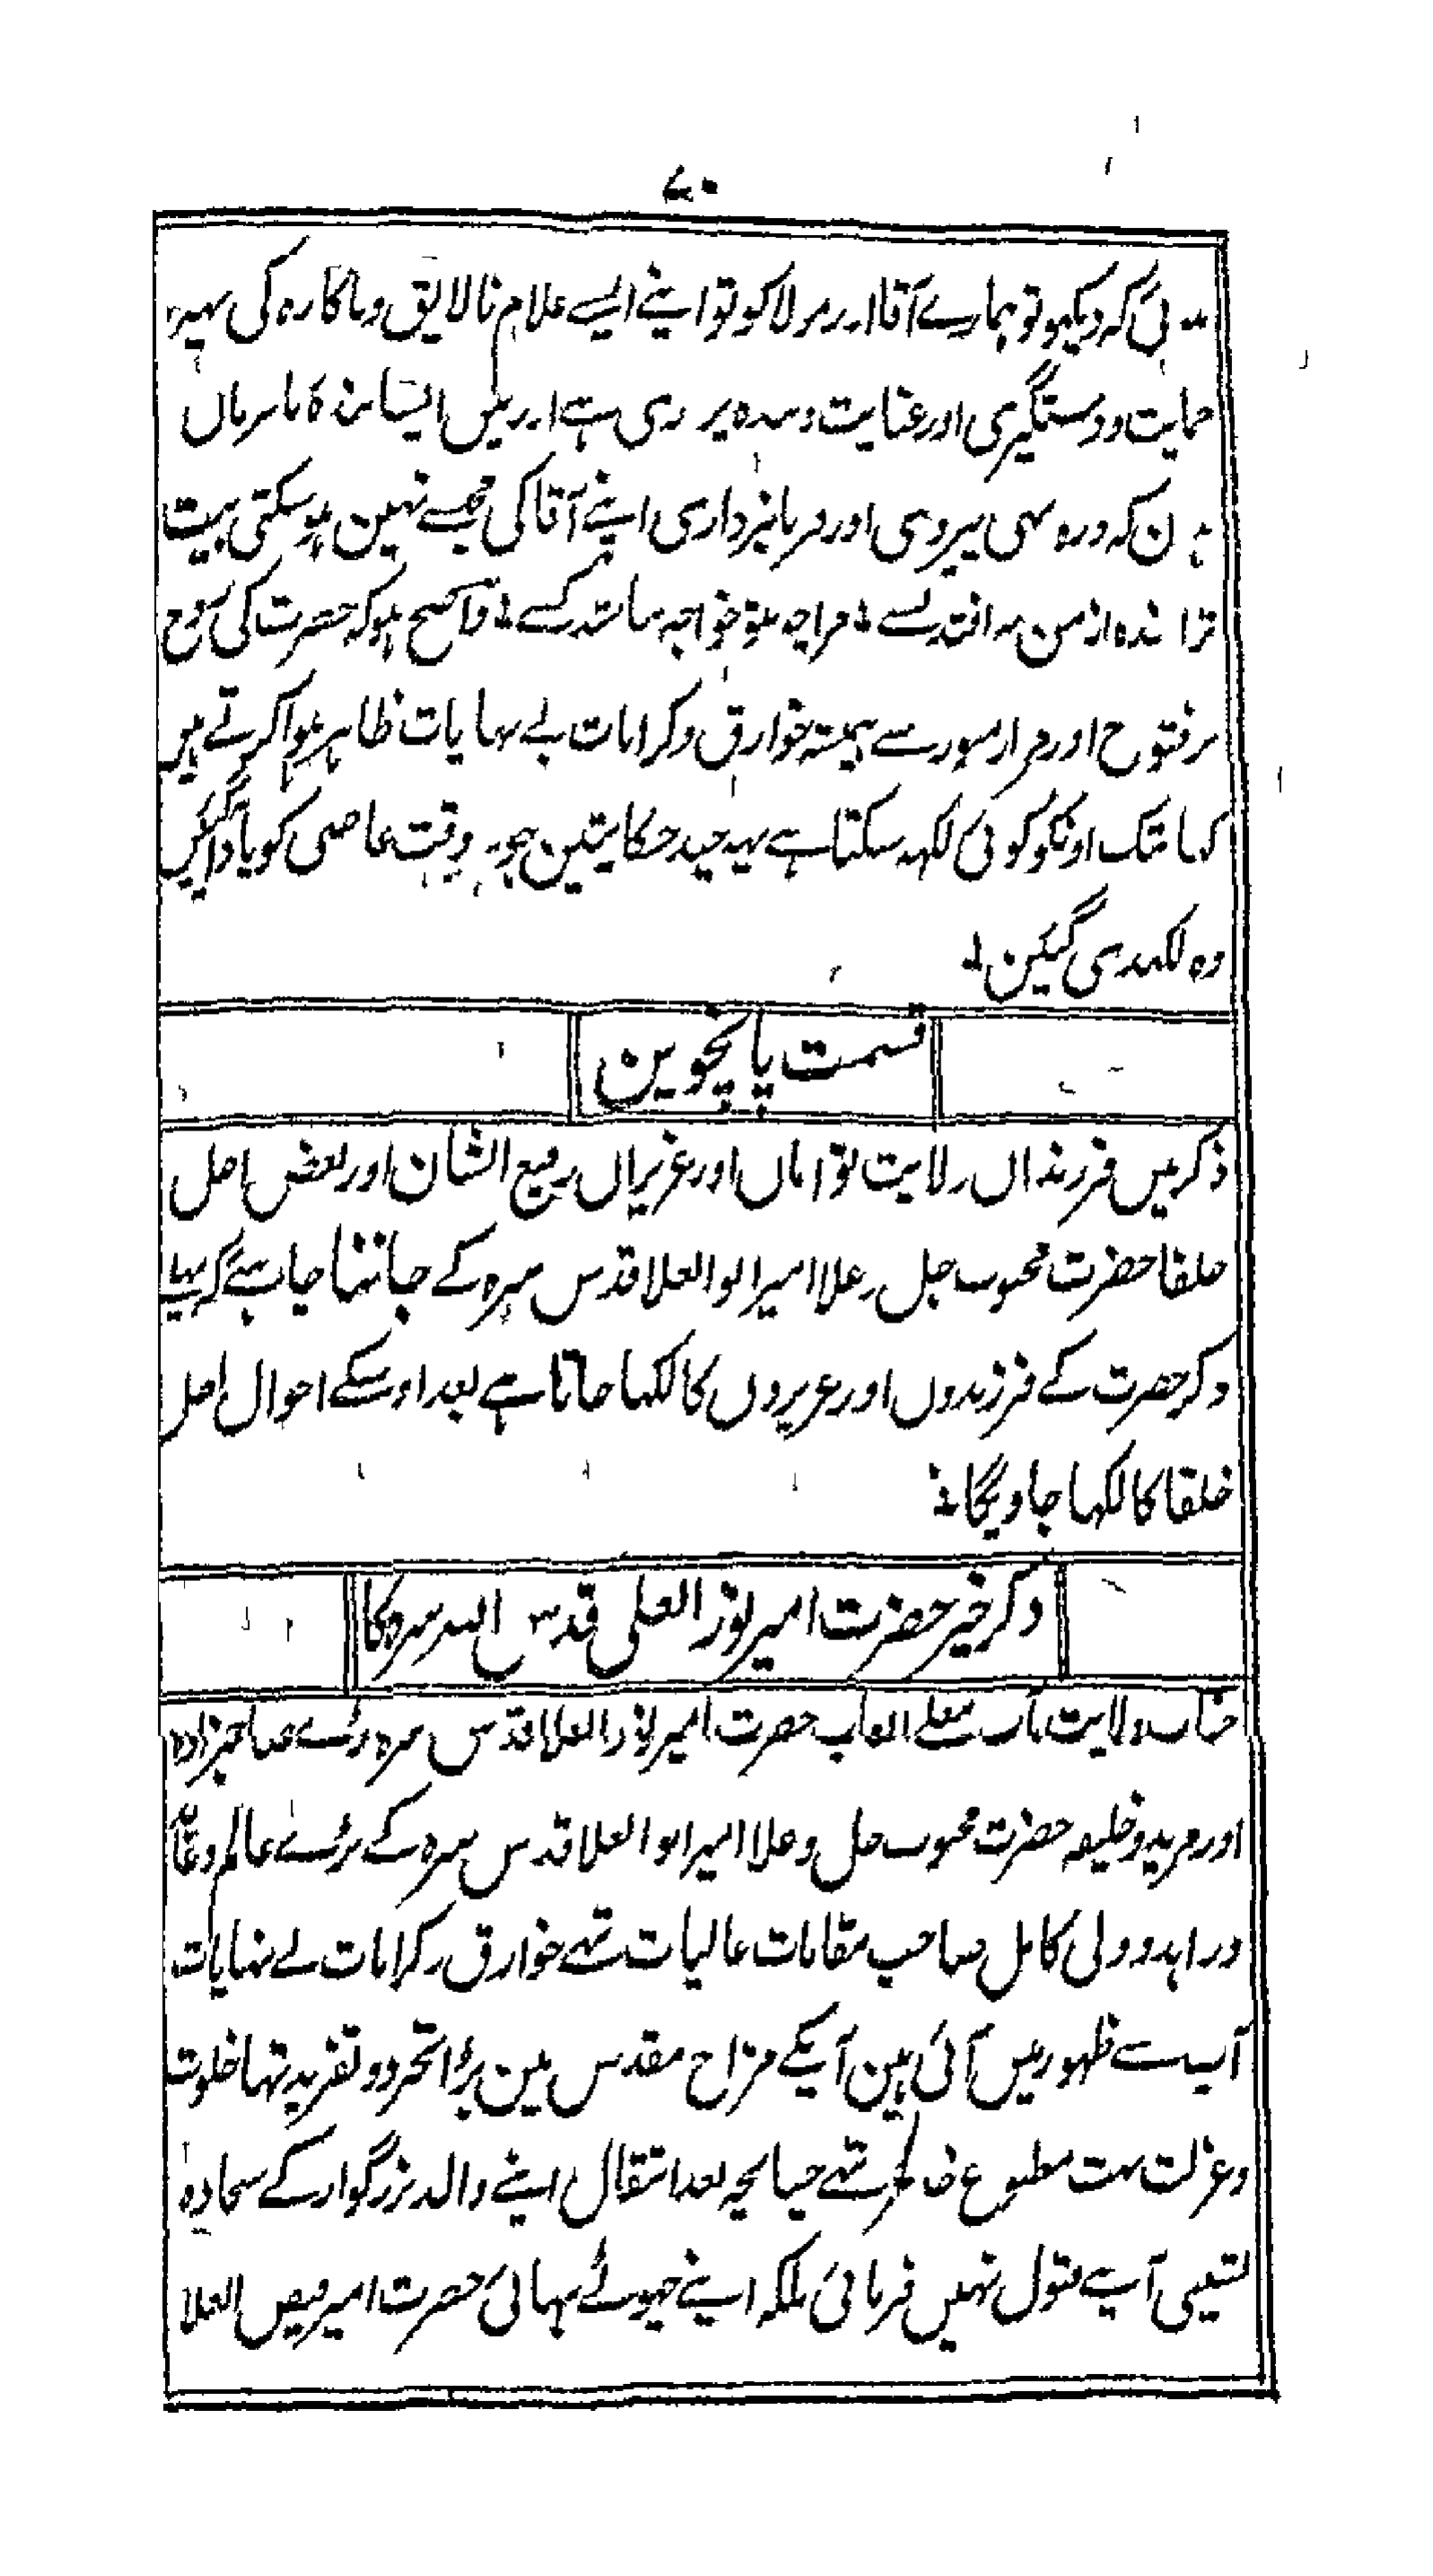 ۷۰
کہ دیکھو تو ہمارے آقا اور مولا کو تو اپنے ایسے غلام نالایق وناکارہ کی یہہ
حمایت ودستگیری اور عنایت وبندہ پروری ہے اور میں ایسا بندۂ نافرمان
ہون کہ ذرہ بھی پیروی اور فرمانبرداری اپنے آقا کی مجھسے نہین ہوسکتی بیت
ترا بندہ از من بہ افتد بسے ؞ مراچہ تو خواجہ نباشد کسے ؞ واضح ہو کہ حضرت کی روح
پرفتوح اور مزار سے ہمیشہ خوارق وکرامات بے نہایات ظاہر ہوا کرتے ہیں
کہانتک اونکو کوئی لکھہ سکتا ہے یہہ چند حکایتین جو وقت عاصی کو یاد آگئیں
وہ لکھدی گیئن ؞
قسمت پانچوین
ذکر میں فرزندان ولایت تواماں اور عزیزاں رفیع الشان اور بعض اصل
خلفا حضرت محبوب جل وعلا امیر ابوالعلا قدس سرہ کے جاننا چاہئے کہ پہلے
ذکر حضرت کے فرزندوں اور عزیزوں کا لکھا جاتا ہے بعد اوسکے احوال اصل
خلفا کا لکھا جاویگا ؞
ذکر خیر حضرت امیر نور العلی قدس اللہ سرہ کا
جناب ولایت مآب معلے القاب حضرت امیر نور العلا قدس سرہ بڑے صاحبزادہ
اور مرید وخلیفہ حضرت محبوب جل وعلا امیر ابوالعلا قدس سرہ کے بڑے عالم
وزاہد وولی کامل صاحب مقامات عالیات تھے خوارق وکرامات بے نہایات
آپ سے ظہور میں آئی ہین آپکے مزاج مقدس مین بڑا تجرد وتفرید تھا خلوت
وعزلت بہت مطبوع خاطر تھے چنانچہ بعد انتقال اپنے والد بزرگوار کے سجادہ
نشینی آپ نے قبول نہیں فرمائی بلکہ اپنے چھوٹے بھائی حضرت امیر فیض العلا